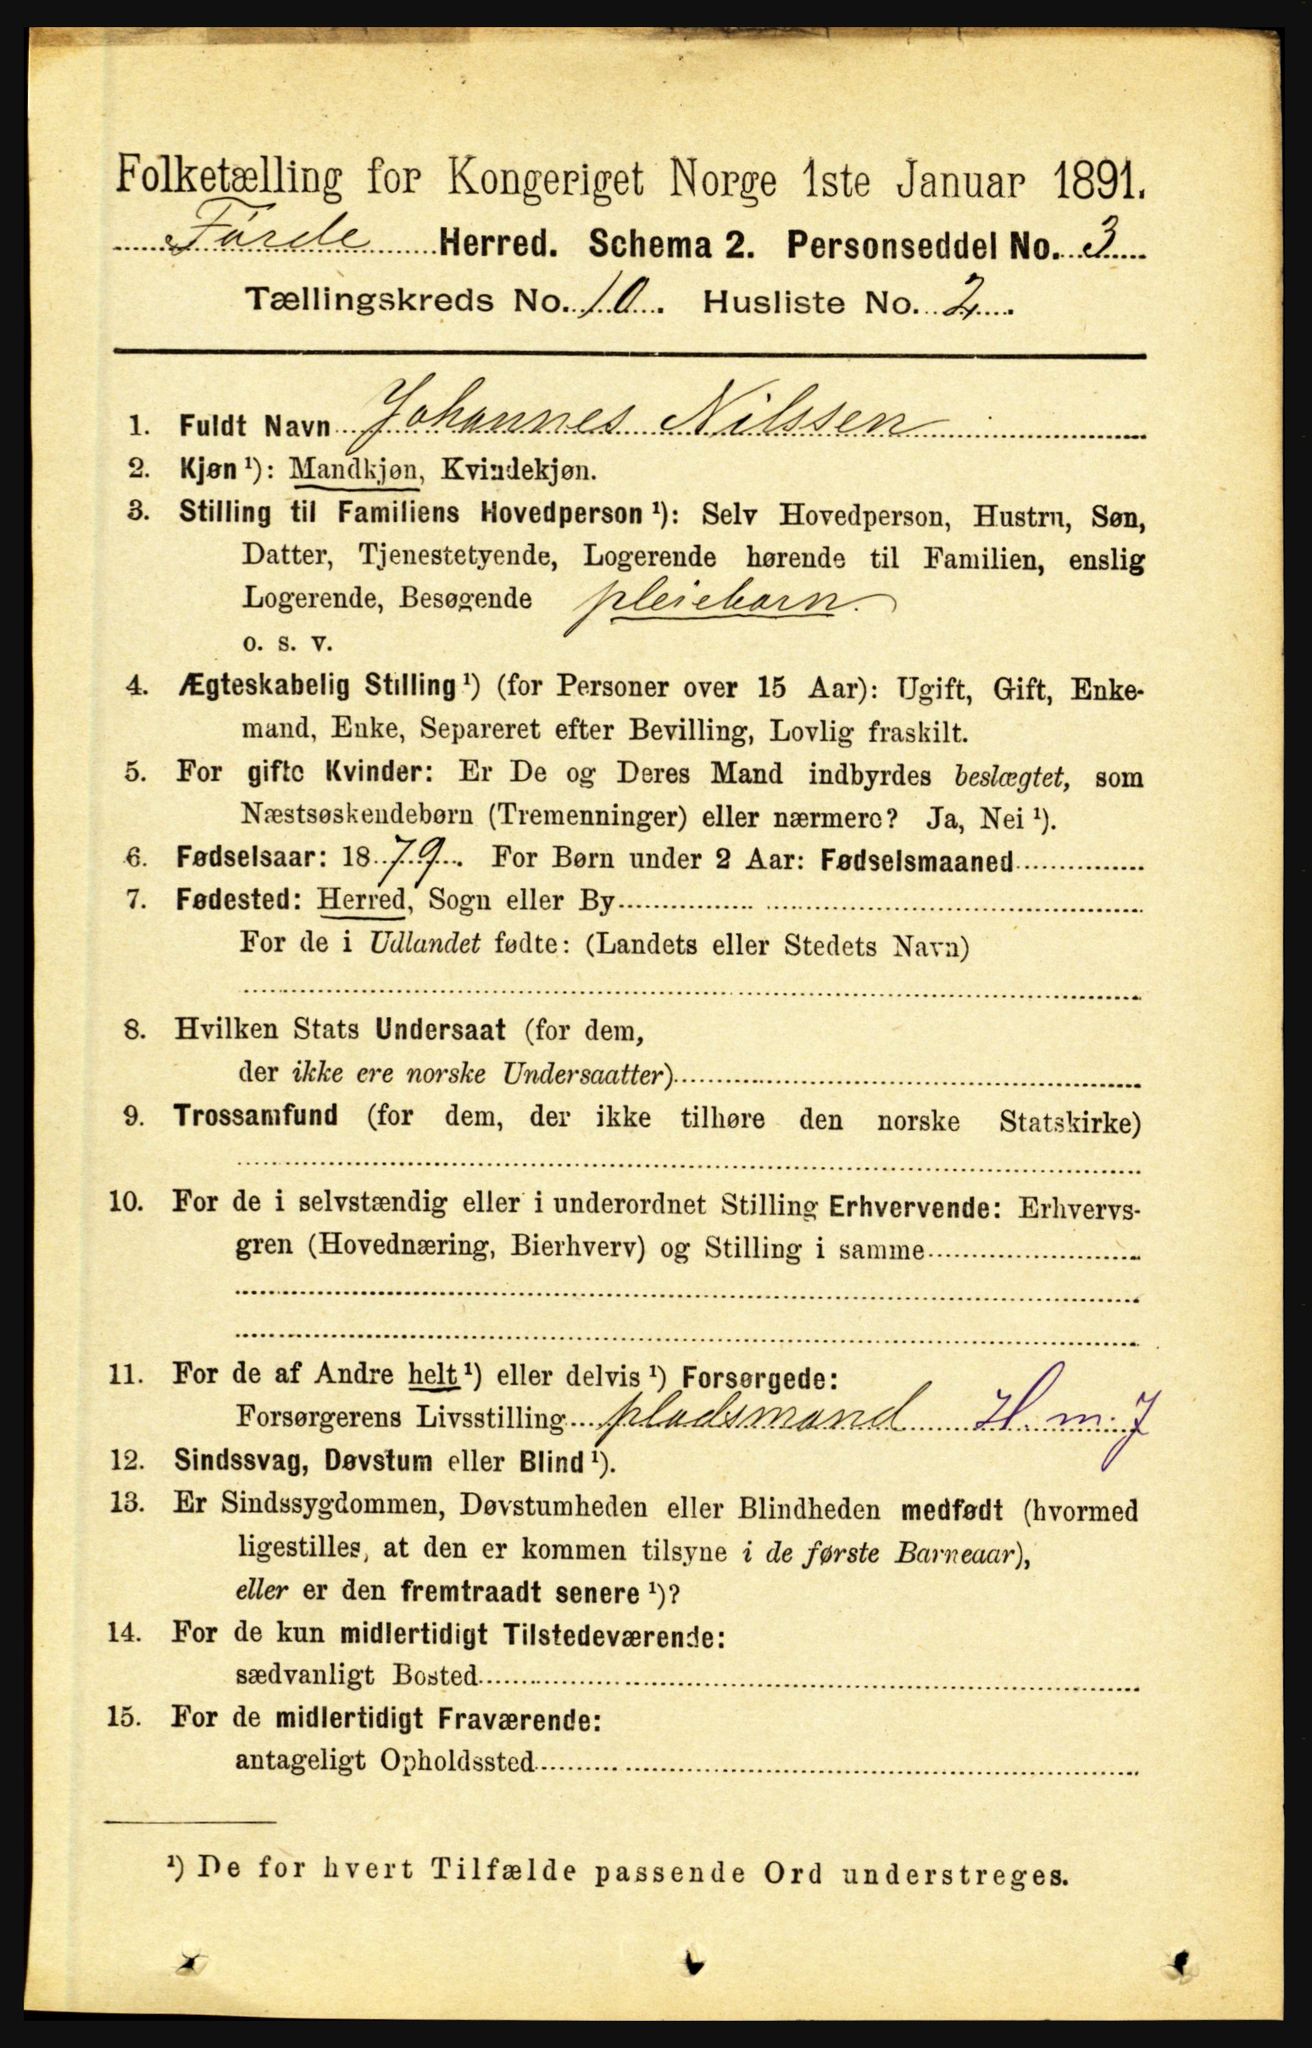 Folketælling for Kongeriget Norge 1ste Januar 1891.
Førde Herred. Schema 2. Personseddel No. 3
Tællingskreds No. 10. Husliste No. 2.
1. Fuldt Navn Johannes Nilssen
2. Kjøn ¹): Mandkjøn, Kvindekjøn.
3. Stilling til Familiens Hovedperson ¹): Selv Hovedperson, Hustru, Søn,
Datter, Tjenestetyende, Logerende hørende til Familien, enslig
Logerende, Besøgende pleiebarn.
o. s. v.
4. Ægteskabelig Stilling ¹) (for Personer over 15 Aar): Ugift, Gift, Enke-
mand, Enke, Separeret efter Bevilling, Lovlig fraskilt.
5. For gifte Kvinder: Er De og Deres Mand indbyrdes beslægtet, som
Næstsøskendebørn (Tremenninger) eller nærmere? Ja, Nei ¹).
6. Fødselsaar: 1879. For Børn under 2 Aar: Fødselsmaaned
7. Fødested: Herred, Sogn eller By
For de i Udlandet fødte: (Landets eller Stedets Navn)
8. Hvilken Stats Undersaat (for dem,
der ikke ere norske Undersaatter)
9. Trossamfund (for dem, der ikke tilhøre den norske Statskirke)
10. For de i selvstændig eller i underordnet Stilling Erhvervende: Erhvervs-
gren (Hovednæring, Bierhverv) og Stilling i samme
11. For de af Andre helt ¹) eller delvis ¹) Forsørgede:
Forsørgerens Livsstilling pladsmand H. m. J
12. Sindssvag, Døvstum eller Blind ¹).
13. Er Sindssygdommen, Døvstumheden eller Blindheden medfødt (hvormed
ligestilles, at den er kommen tilsyne i de første Barneaar),
eller er den fremtraadt senere ¹)?
14. For de kun midlertidigt Tilstedeværende:
sædvanligt Bosted
15. For de midlertidigt Fraværende:
antageligt Opholdssted
¹) De for hvert Tilfælde passende Ord understreges.